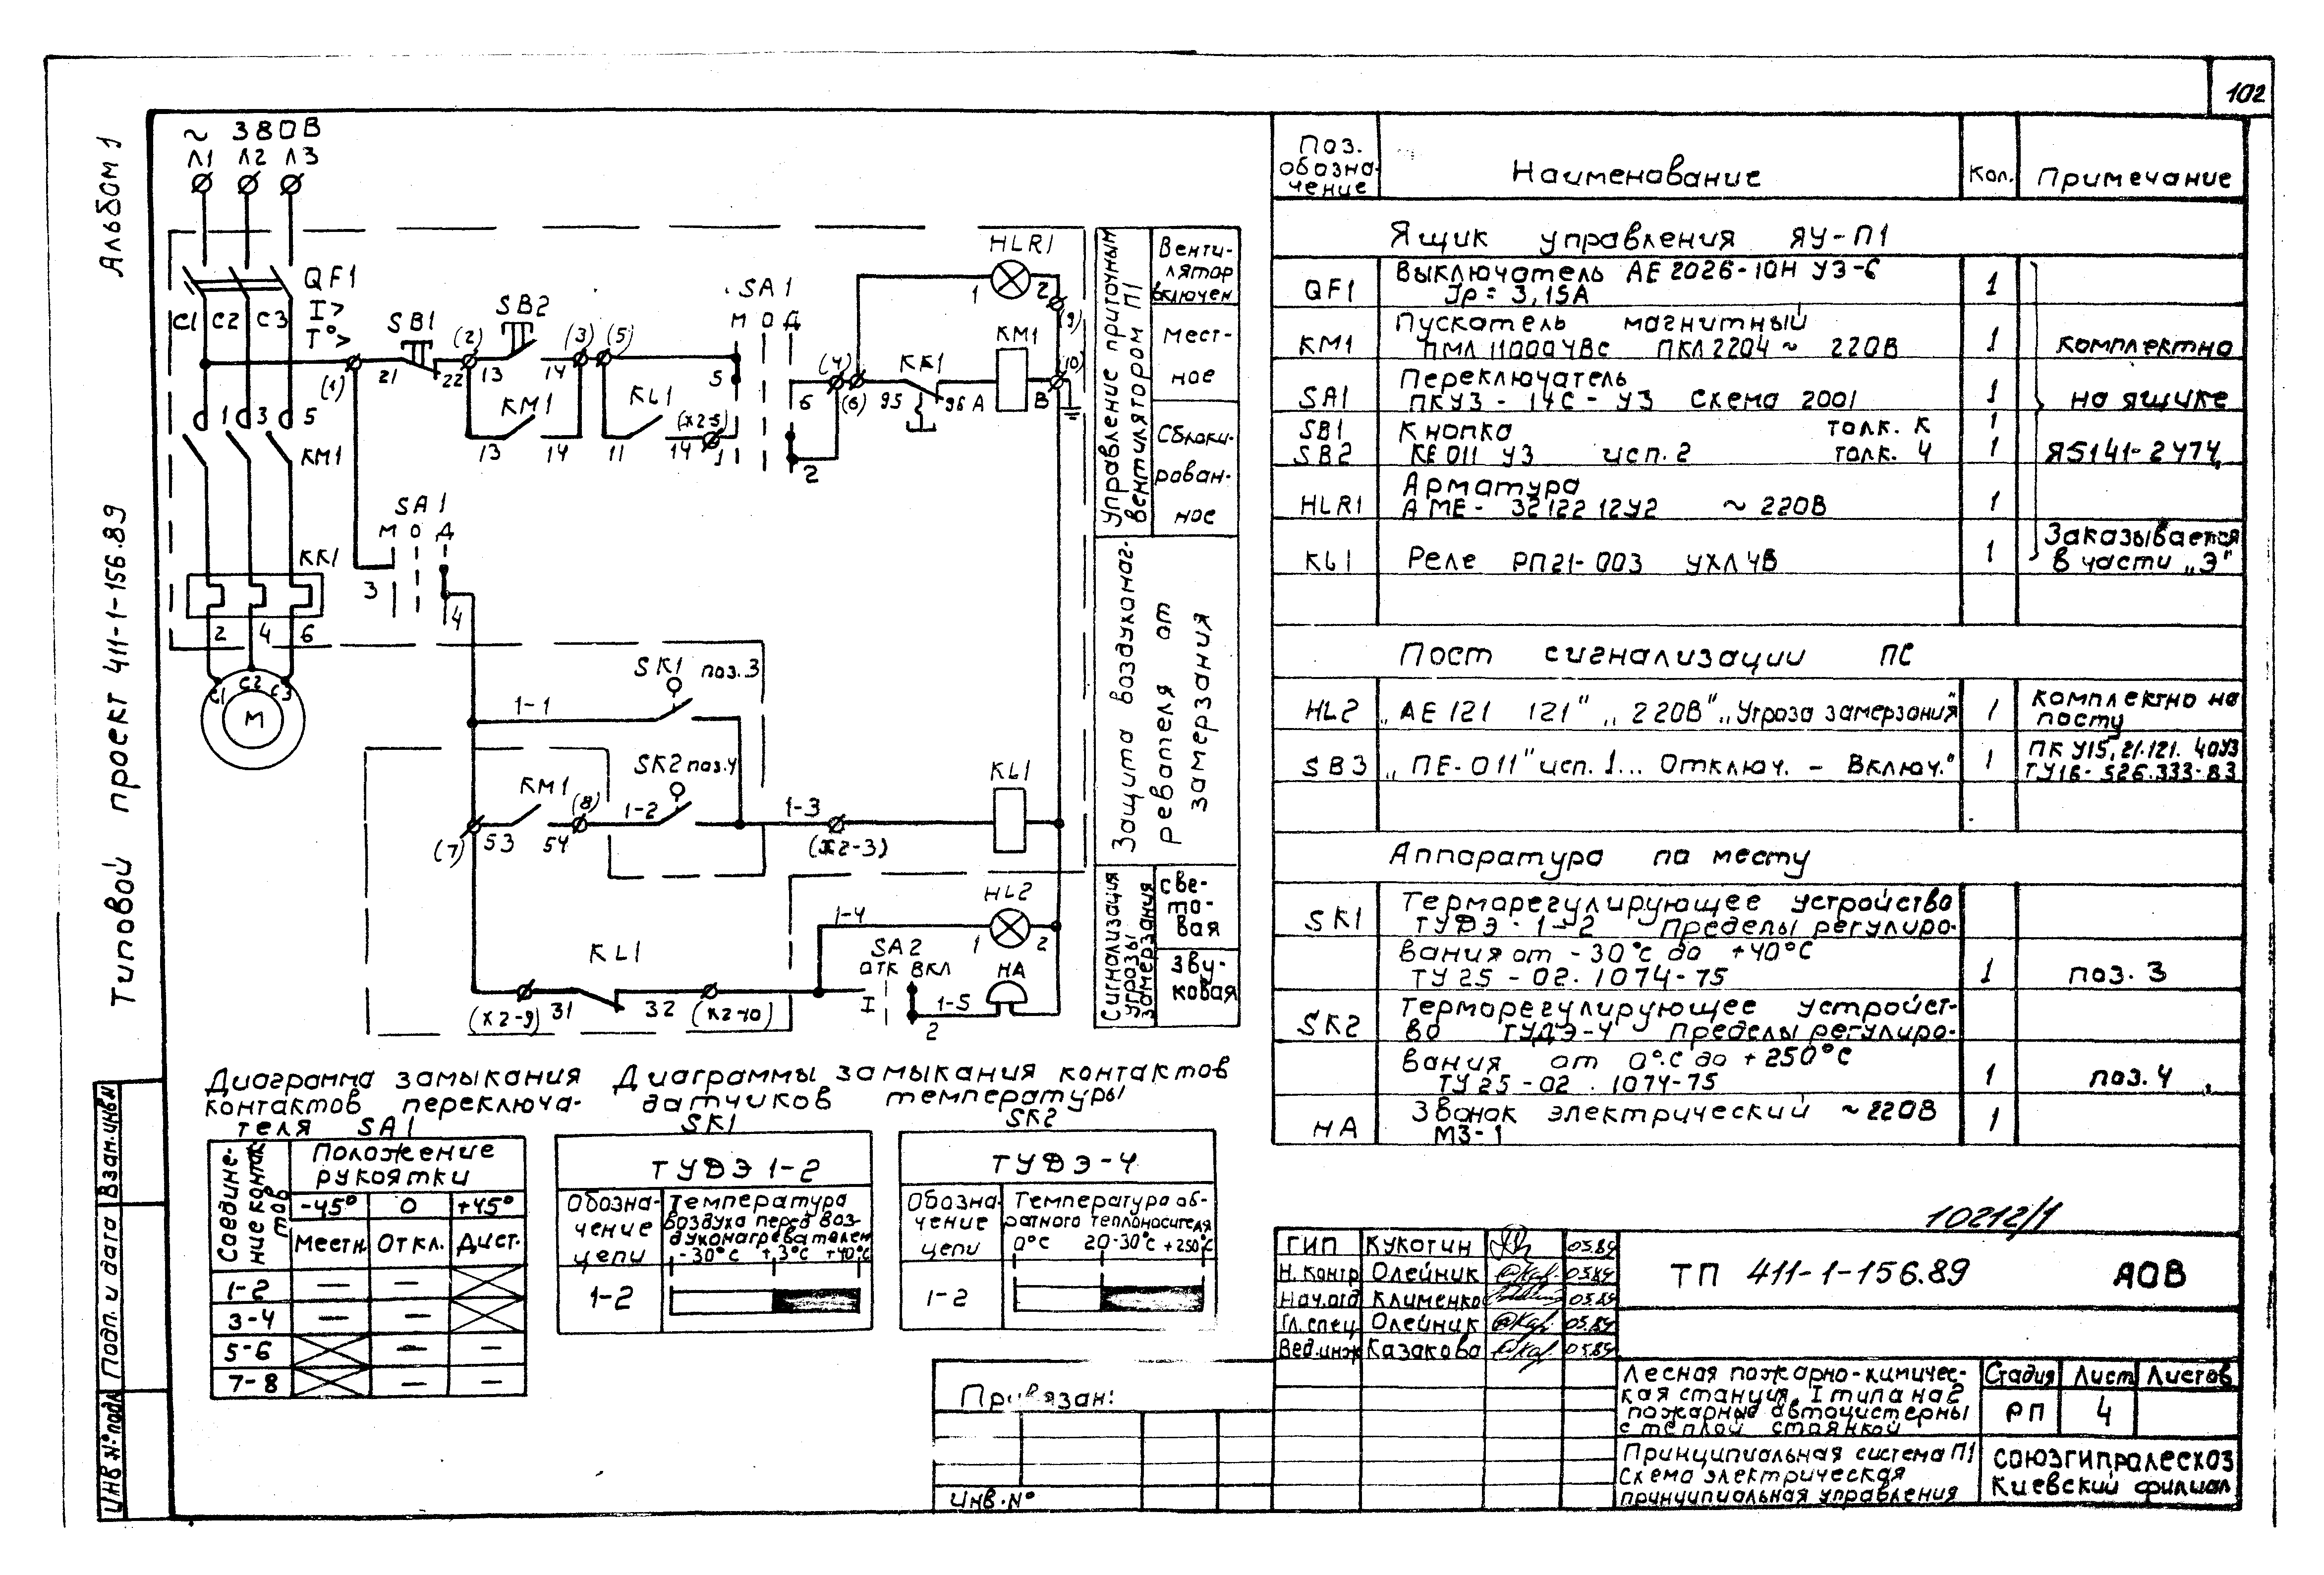 102
Альбом 1
Типовой проект 411-1-156.89
~ 380В
Л1 Л2 Л3
QF1
I>
T°>
C1 C2 C3
SB1
SB2
SA1
М О Д
HLR1
1 2
(1) 21 22 (2) 13 14 (3) (5)
5 6 (4) (6)
KK1
95 96 A
KM1
B (10) (9)
KM1
13 14
KL1
11 14 (X2-5) 1 2
1 3 5
KM1
SA1
М О Д
3 4
KK1
2 4 6
C1 C2 C3
М
SK1 поз.3
1-1
SK2 поз.4
KM1
(7) 53 54 (8) 1-2
1-3
(X2-3)
KL1
HL2
1-4
1 2
KL1
(X2-9) 31 32 (X2-10)
SA2
ОТК ВКЛ
I 2 1-5
HA
Управление приточным вентилятором П1
Венти-
лятор
включен
Мест-
ное
Сблоки-
рован-
ное
Защита воздухонаг-
ревателя от
замерзания
Сигнализация
угрозы
замерзания
све-
то-
вая
зву-
ковая
Диаграмма замыкания
контактов переключа-
теля SA1
Соедине-
ние контак
тов
Положение
рукоятки
-45° 0 +45°
Местн. Откл. Дист.
1-2 — —
3-4 — —
5-6 — —
7-8 — —
Диаграммы замыкания контактов
датчиков температуры
SK1 SK2
ТУДЭ 1-2
Обозна-
чение
цепи
Температура
воздуха перед воз-
духонагревателем
-30°С +3°С +40°С
1-2
ТУДЭ-4
Обозна-
чение
цепи
Температура об-
ратного теплоносителя
0°С 20-30°С +250°С
1-2
Поз.
обозна-
чение
Наименование
Кол.
Примечание
Ящик управления ЯУ-П1
QF1 Выключатель АЕ2026-10Н У3-Б 1
Jр = 3,15А
KM1 Пускатель магнитный 1 комплектно
ПМЛ 11000 4Вс ПКЛ 2204 ~ 220В
SA1 Переключатель 1 на ящике
ПКУ3-14С-У3 Схема 2001
SB1 Кнопка толк. К 1
SB2 КЕ 011 У3 исп. 2 толк. Ч 1 Я5141-2474
HLR1 Арматура 1
АМЕ-32122 12У2 ~ 220В
KL1 Реле РП21-003 УХЛ4В 1 Заказывается
в части „Э"
Пост сигнализации ПС
HL2 „АЕ 121 121" „220В" „Угроза замерзания" 1 комплектно на
посту
SB3 „ПЕ-011" исп. 1... Отключ. – Включ." 1 ПКУ15.21.121. 40У3
ТУ16-526.333-83
Аппаратура по месту
SK1 Терморегулирующее устройство
ТУДЭ-1-2 Пределы регулиро-
вания от -30°С до +40°С
ТУ25-02.1074-75 1 поз. 3
SK2 Терморегулирующее устройст-
во ТУДЭ-4 Пределы регулиро-
вания от 0°С до +250°С
ТУ25-02.1074-75 1 поз. 4
HA Звонок электрический ~220В 1
МЗ-1
10212/1
ГИП Кукотин 05.89
Н. контр Олейник 05.89
Нач.отд Клименко 05.89
Гл. спец Олейник 05.89
Вед.инж Казакова 05.89
ТП 411-1-156.89 АОВ
Лесная пожарно-химичес-
кая станция I типа на 2
пожарные автоцистерны
с теплой стоянкой
Стадия Лист Листов
РП 4
Принципиальная система П1
Схема электрическая
принципиальная управления
Союзгипролесхоз
Киевский филиал
Привязан:
Инв. №
Взам. инв. №
Подп. и дата
Инв № подл